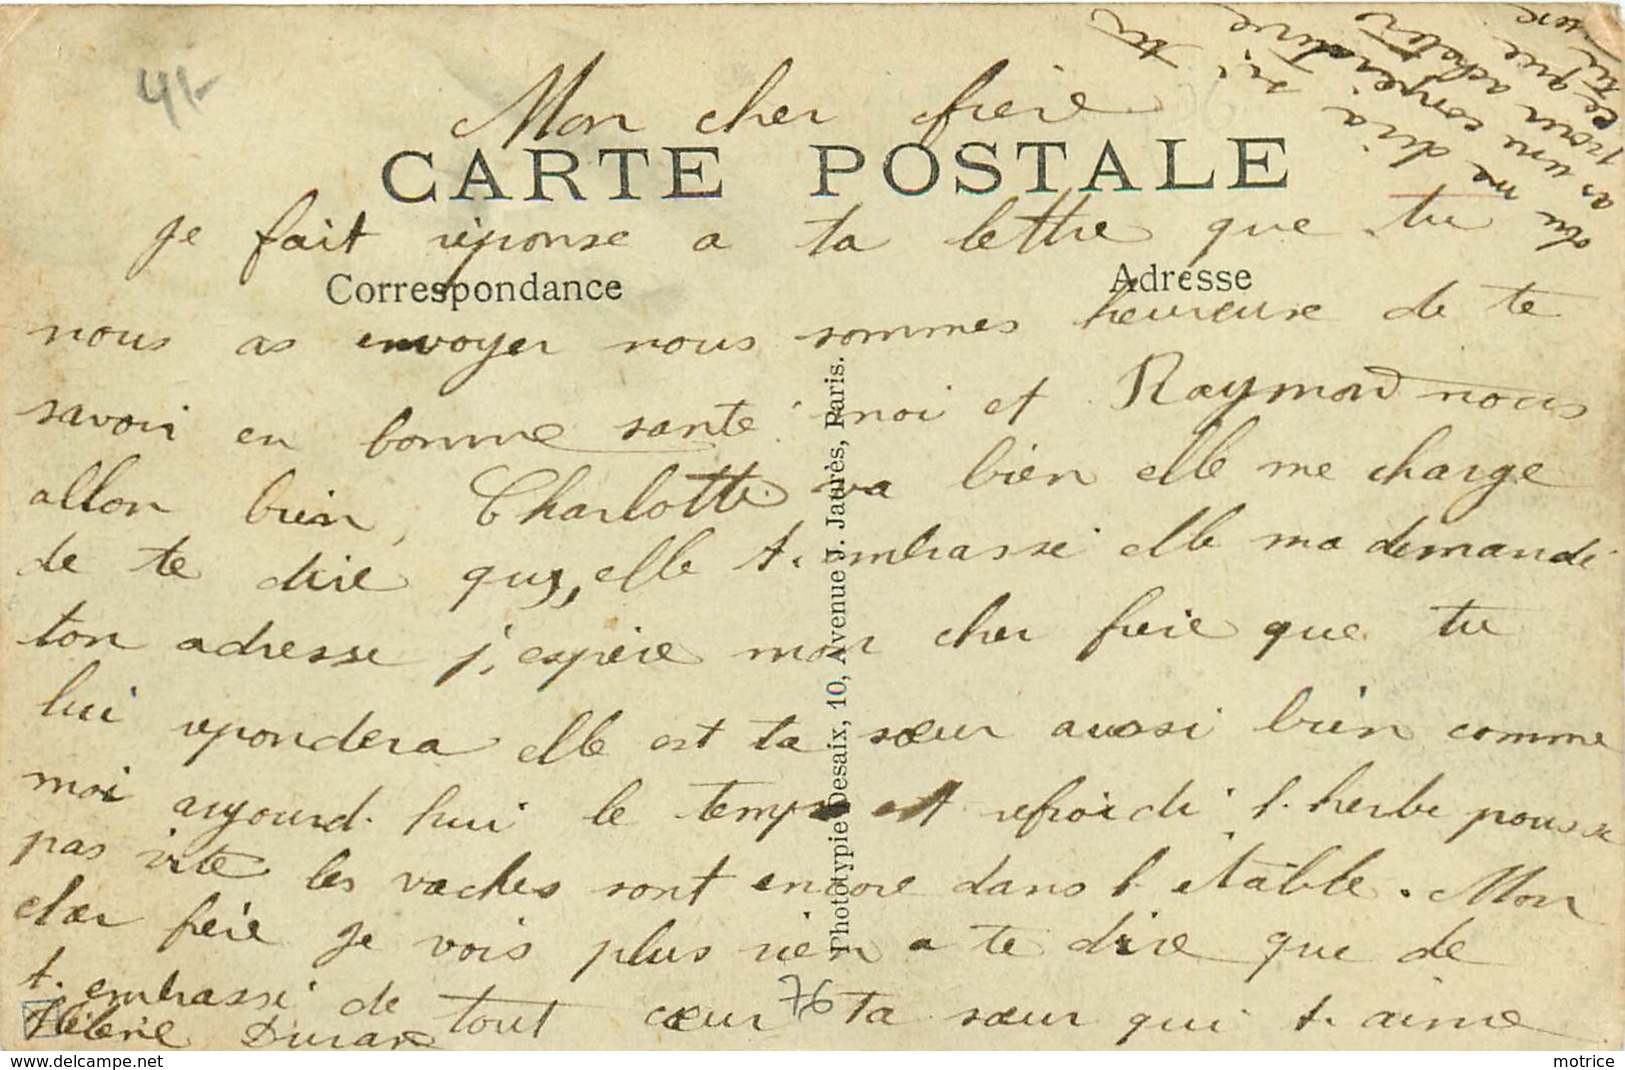 41-
Mon cher frere
CARTE POSTALE
je fait réponse a ta lettre que tu
Correspondance
Adresse
nous as envoyer nous sommes heureuse de te
savoir en bonne santé moi et Raymond nous
allon bien, Charlotte va bien elle me charge
de te dire que, elle t. embrasse elle ma demandé
ton adresse j, espère mon cher frere que tu
lui repondera elle est ta sœur aussi bien comme
moi aujourd. hui le temps est refroidi l. herbe pousse
pas vite les vaches sont encore dans l. étable. Mon
cher frére je vois plus rien a te dire que de
t. embrasse de tout cœur ta sœur qui t. aime
Durand
76
tu me dira si tu
as une
pour acheter
ce que
tu
Phototypie Desaix, 10, Avenue J. Jaurès, Paris.
motrice